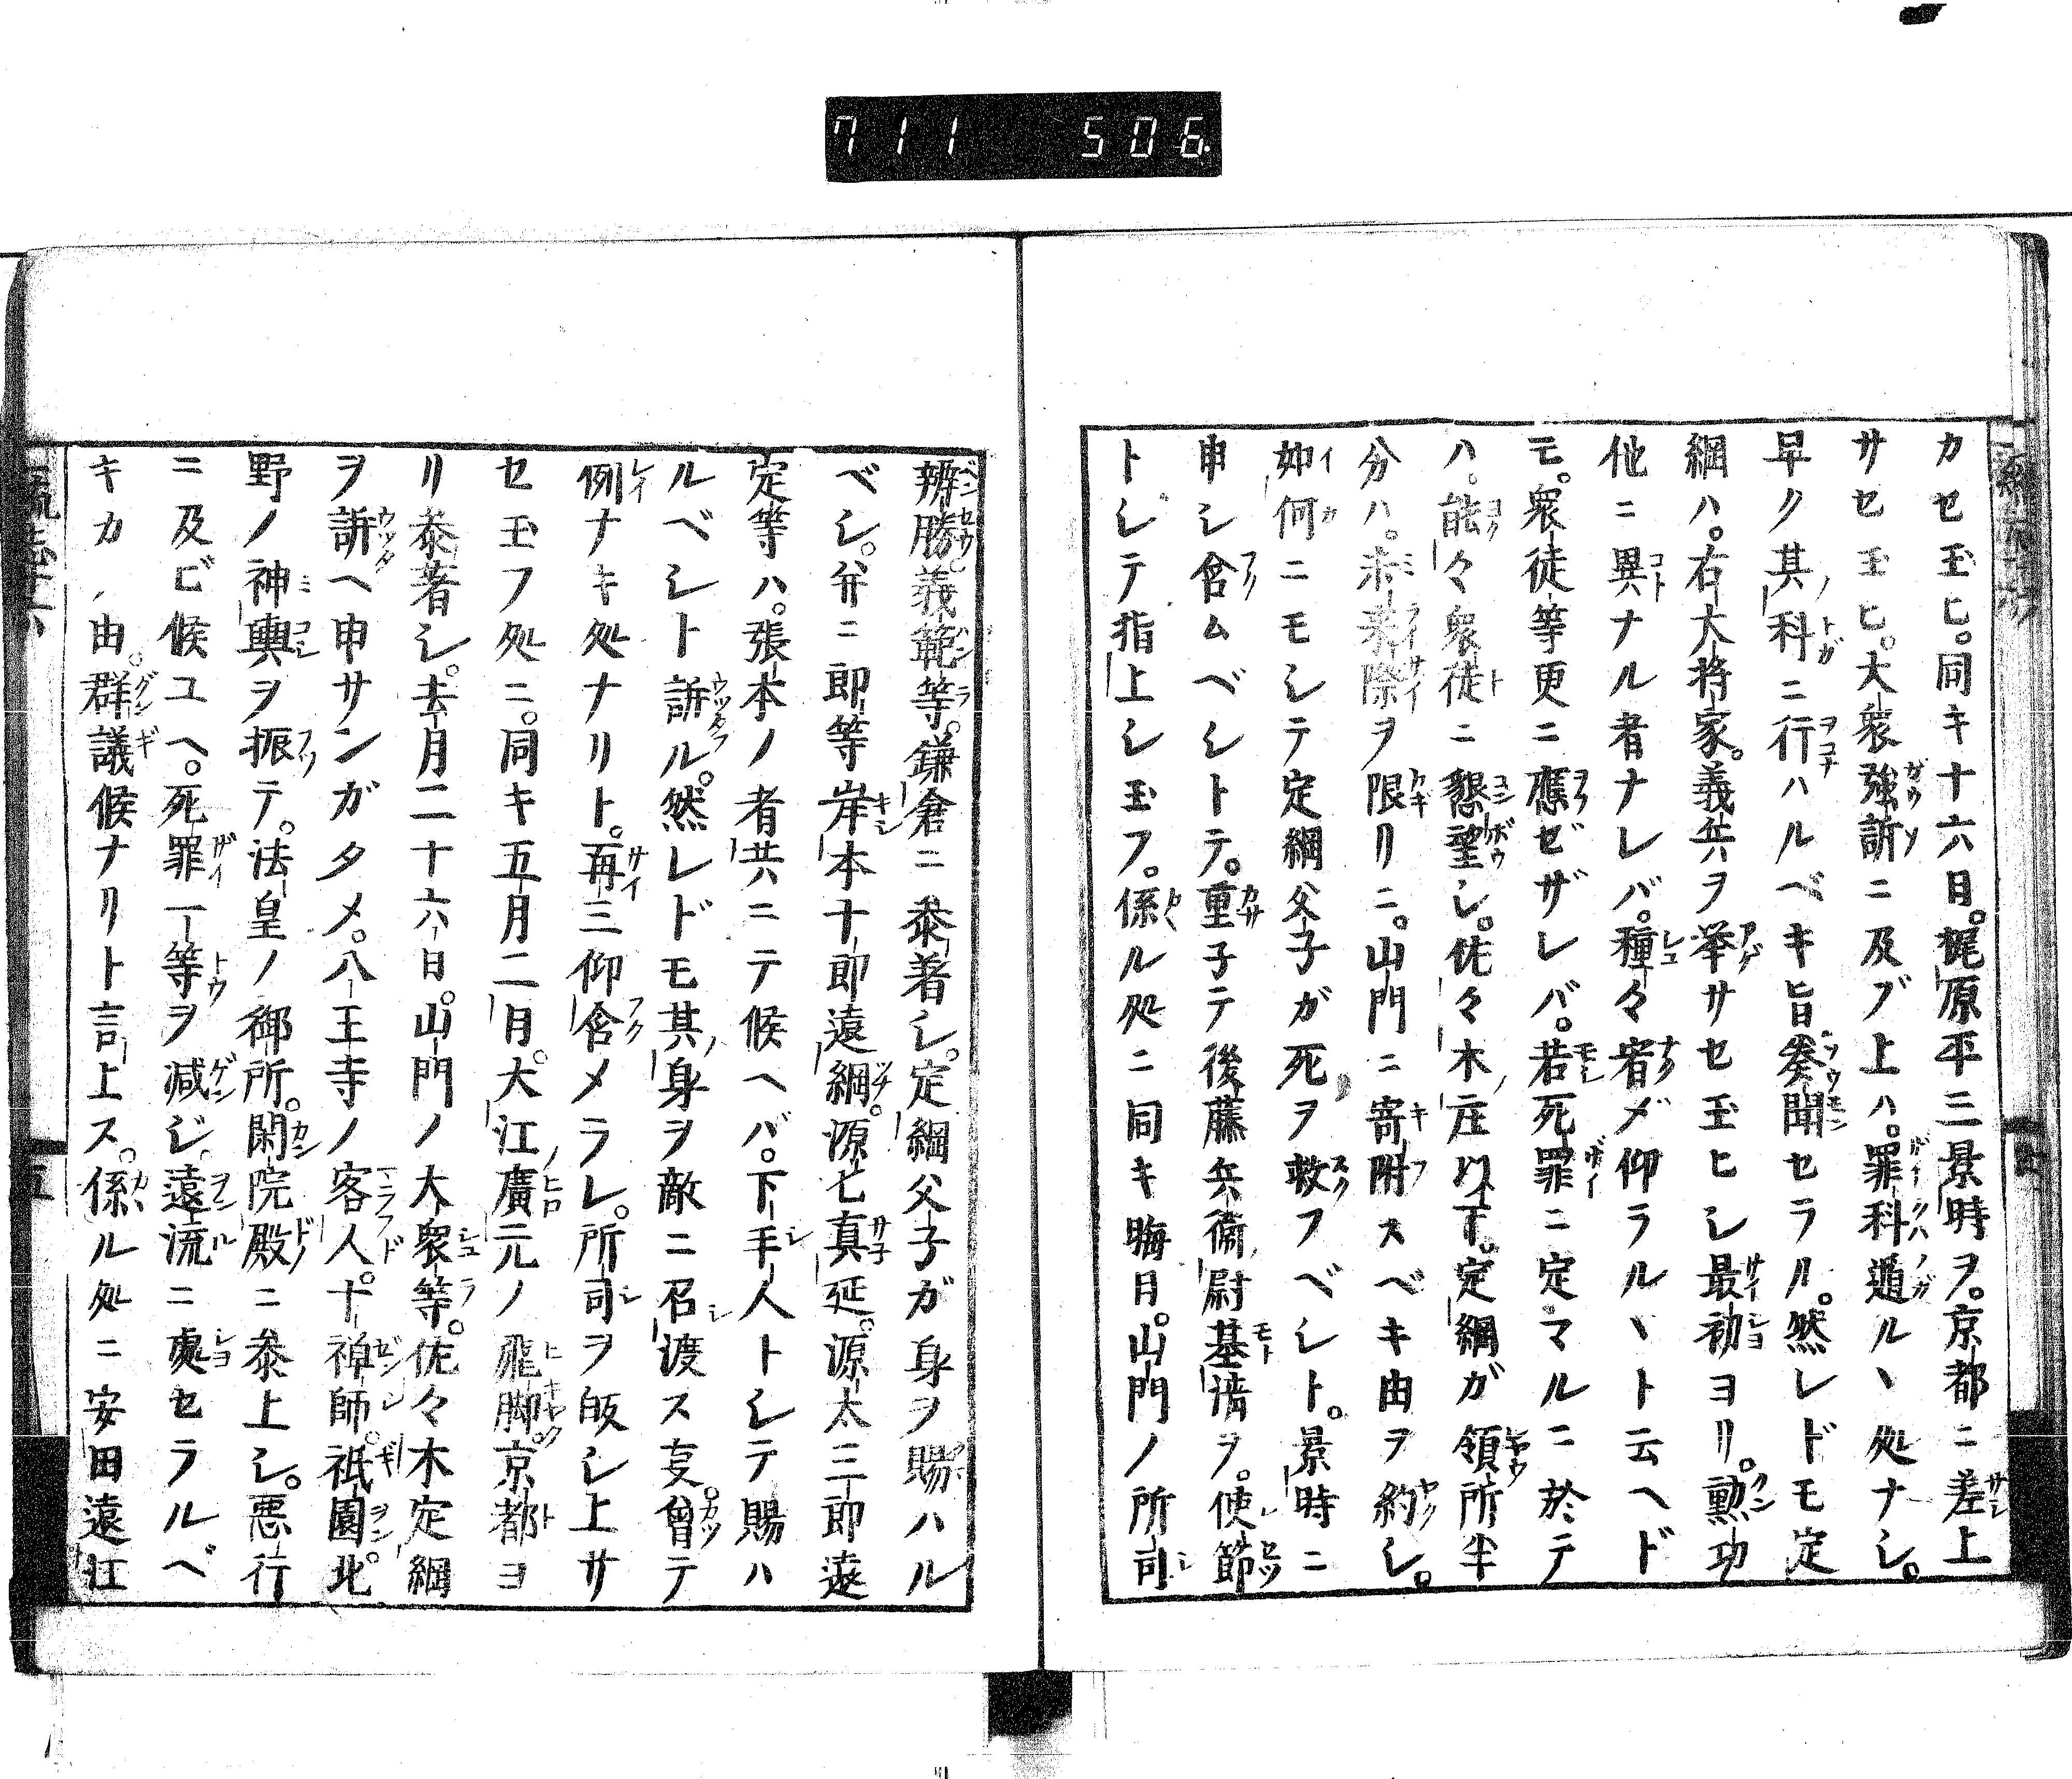 711 506
カセ玉ヒ。同キ十六日。梶原平三景時ヲ。京都ニ差上
サセ玉ヒ。大衆強訴ニ及ブ上ハ。罪科遁ルヽ処ナシ。
早ク其科ニ行ハルベキ旨奏聞セラル。然レドモ定
綱ハ。右大将家。義兵ヲ挙サセ玉ヒシ最初ヨリ。勲功
他ニ異ナル者ナレバ。種々宥メ仰ラルヽト云ヘド
モ。衆徒等更ニ應ゼザレバ。若死罪ニ定マルニ於テ
ハ。能々衆徒ニ懇望シ。佐々木庄以下。定綱ガ領所半
分ハ。未来際ヲ限リニ。山門ニ寄附スベキ由ヲ約シ。
如何ニモシテ定綱父子ガ死ヲ救フベシト。景時ニ
申シ含ムベシトテ。重子テ後藤兵衛尉基清ヲ。使節
トシテ指上シ玉フ。係ル処ニ同キ晦日。山門ノ所司
辨勝。義範等。鎌倉ニ参着シ。定綱父子ガ身ヲ賜ハル
ベシ。并ニ郎等岸本十郎遠綱。源七真延。源太三郎遠
定等ハ。張本ノ者共ニテ候ヘバ。下手人トシテ賜ハ
ルベシト訴ル。然レドモ其身ヲ敵ニ召渡ス支。曽テ
例ナキ処ナリト。再三仰含メラレ。所司ヲ皈シ上サ
セ玉フ処ニ。同キ五月二月。大江廣元ノ飛脚。京都ヨ
リ参着シ。去月二十六日。山門ノ大衆等。佐々木定綱
ヲ訴ヘ申サンガタメ。八王寺ノ客人。十禅師。祇園。北
野ノ神輿ヲ振テ。法皇ノ御所。閑院殿ニ参上シ。悪行
ニ及ビ候ユヘ。死罪一等ヲ減ジ。遠流ニ處セラルベ
キカノ由。群議候ナリト言上ス。係ル処ニ安田遠江
五